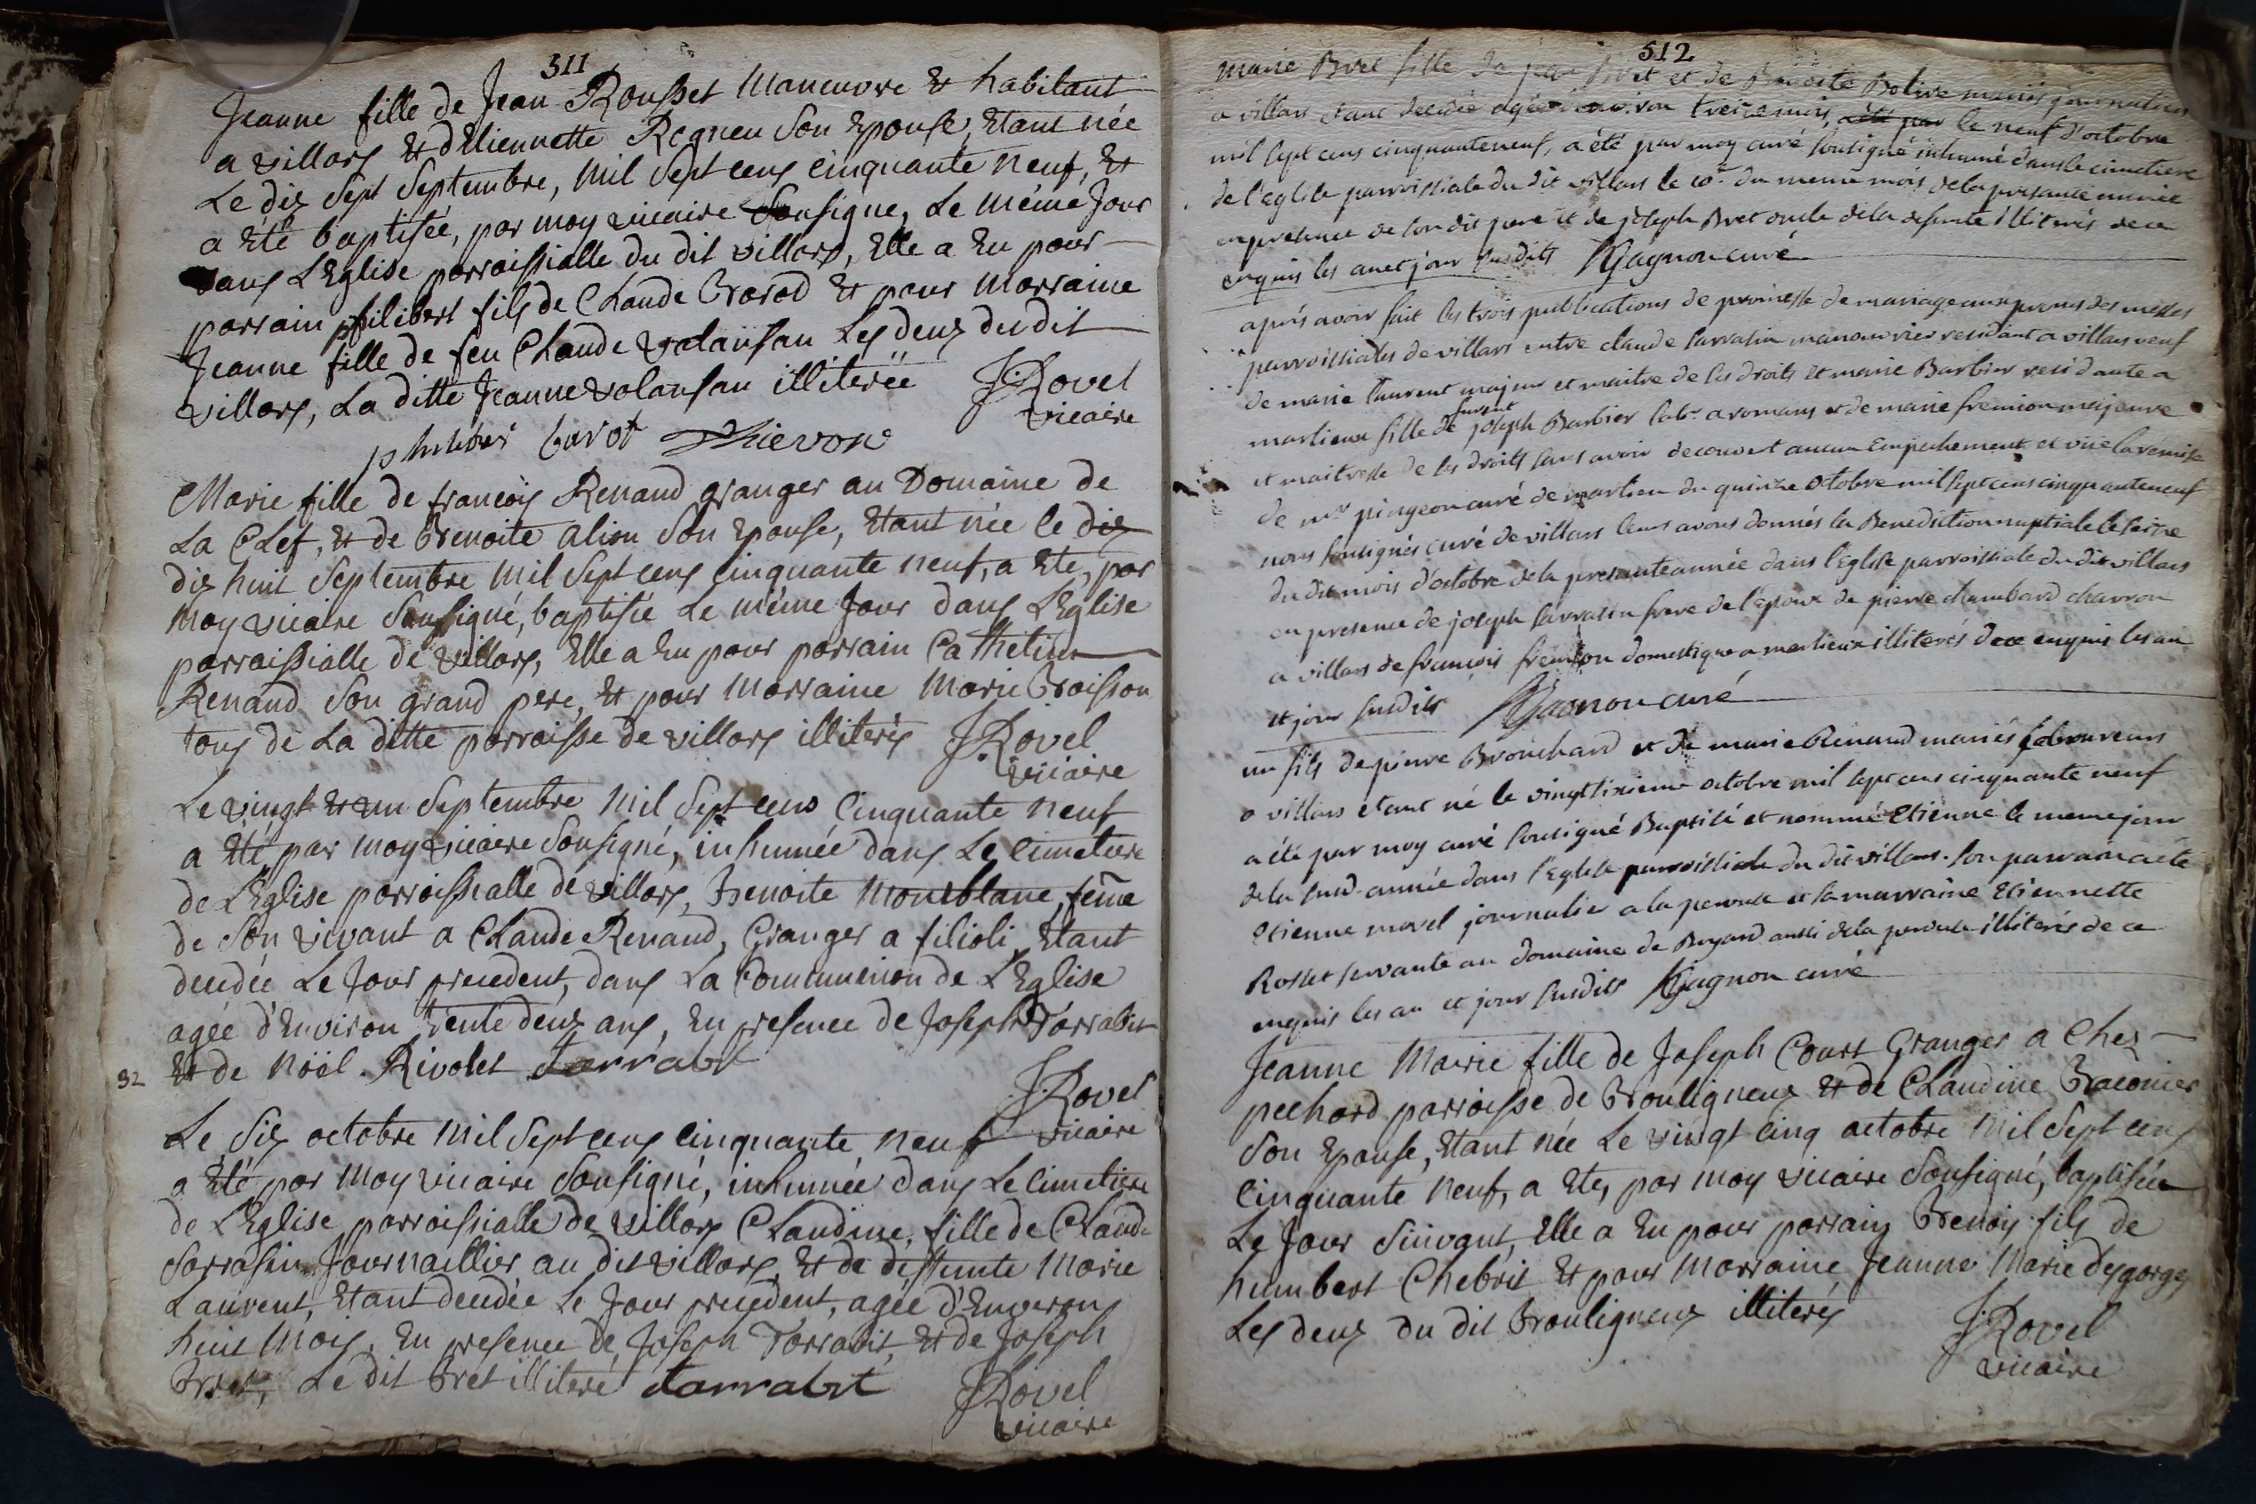 311
Jeanne fille de Jean Rousset Maneuvre & habitant
a villars & d'Etiennette Regneu Son Epouse, Etant née
Le dix Sept Septembre, Mil Sept cens cinquante neuf, &
a Eté baptisée, par moy vicaire Sousigné, Le même Jour
dans L'Eglise parroissialle du dit villars, Elle a Eu pour
parrain philibert fils de Claude Barod & pour Marraine
Jeanne fille de feu Claude Valansan Les deux du dit
villars, La ditte Jeanne Valansan illiterée JRovel
vicaire
philibert barot Thievon
Marie fille de francois Renaud granger au Domaine de
La Clef, & de Benoite alion Son Epouse, Etant née le dix
dix huit Septembre Mil Sept cens Cinquante neuf, a Eté, par
Moy vicaire Sousigné, baptisée Le même Jour dans L'Eglise
parroissialle de villars, Elle a Eu pour parrain Cathelin
Renaud Son grand pere, & pour Marraine Marie Broisson
tous de La ditte parroisse de villars illiterés JRovel
vicaire
Le vingt & un Septembre Mil Sept cens Cinquante neuf
a Eté, par moy vicaire Sousigné, inhumée dans Le Cimetiere
de L'Eglise parroissialle de villars, Benoite Montblanc, feme
de Son vivant a Claude Renaud, Granger a filioli, Etant
decedée Le Jour precedent, dans La Communion de L'Eglise
agée d'Environ trente deux ans, En presence de Joseph Tarrabit
32 & de Noël Rivolet tarrabt
JRovel
vicaire
Le Six octobre Mil Sept cens cinquante neuf
a Eté par Moy vicaire Sousigné, inhumée dans Le Cimetiere
de L'Eglise parroissialle de villars Claudine, fille de Claude
Sarrasin Journaillier au dit villars, & de deffunte Marie
Laurent, Etant decedée Le Jour precedent, agée d'Environ
huit Mois, En presence de Joseph Tarrabit, & de Joseph
Bret, Le dit Bret illiteré tarrabit JRovel
vicaire
512
marie Bret fille de Bret et de Benoite Bolive mariés journaliers
a villars etant decedée agée d'environ treize mois, a été par le neuf d'octobre
mil sept cens cinquanteneuf, a été par moy curé sousigné inhumé dans le cimetiere
de l'eglise parroissiale du dit villars le 10e du meme mois de la presante année
en presence de son dit pere et de joseph Bret oncle de la defunte illiterés de ce
enquis les an et jour susdits Gagnon curé
aprés avoir fait les trois publications de promesse de mariage aux prones des messes
parroissiales de villars entre claude sarrasin manouvrier residant a villars veuf
de marie laurent majeur et maitre de ses droits et marie Barbier residante a
marlieux fille de furent joseph Barbier labr a romans et de marie fremion majeure
et maitresse de ses droits sans avoir decouvert aucun empechement et vüe la remise
de mr pingeon curé de marlieu du quinze octobre mil sept cens cinquanteneuf
nous sousignés curé de villars leurs avons donnés la Benediction nuptiale le seize
du dit mois d'octobre de la presante année dans l'Eglise parroissiale du dit villars
en presence de joseph sarrasin frere de l'epoux de pierre chambard charron
a villars de françois fremion domestique a marlieux illiterés de ce enquis les an
et jour susdits Gagnon curé
un fils de pierre Brouchard et de marie Renaud mariés laboureurs
a villars etant né le vingtsixieme octobre mil sept cens cinquante neuf
a été par moy curé sousigné Baptisé et nommé Etienne le meme jour
de la susd. année dans l'Eglise parroissiale du dit villars. son parrain a été
etienne morel journalier a la perouse et sa marraine Etiennette
Rosset servante au domaine de Bayard aussi de la perouse illiterés de ce
enquis les an et jour susdits Gagnon curé
Jeanne Marie fille de Joseph Court Granger a Chez
pechard parroisse de Bouligneux & de Claudine Braconier
Son Epouse, Etant née Le vingt cinq octobre Mil Sept cens
Cinquante Neuf, a Eté, par moy vicaire Sousigné, baptisée
Le Jour Suivant, Elle a Eu pour parrain Benoiy fils de
humbert Chebrit & pour Marraine Jeanne Marie Degorges
Les deux du dit Bouligneux illiterés JRovel
vicaire